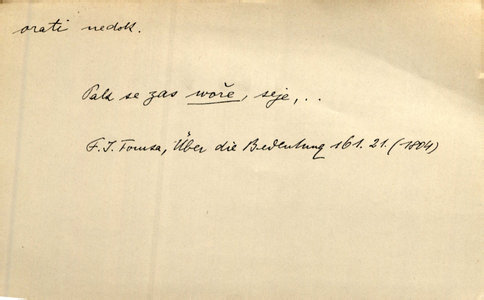 orati nedok.
Pak se zas woře, seje, ..
F. J. Tomsa, Über die Bedeutung 161. 21. (1804)